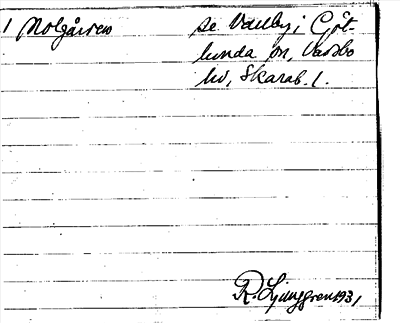 1 Molgården se Valby i Göt-
lunda sn, Vadsbo
hd, Skarab. l.
R. Ljunggren 1931